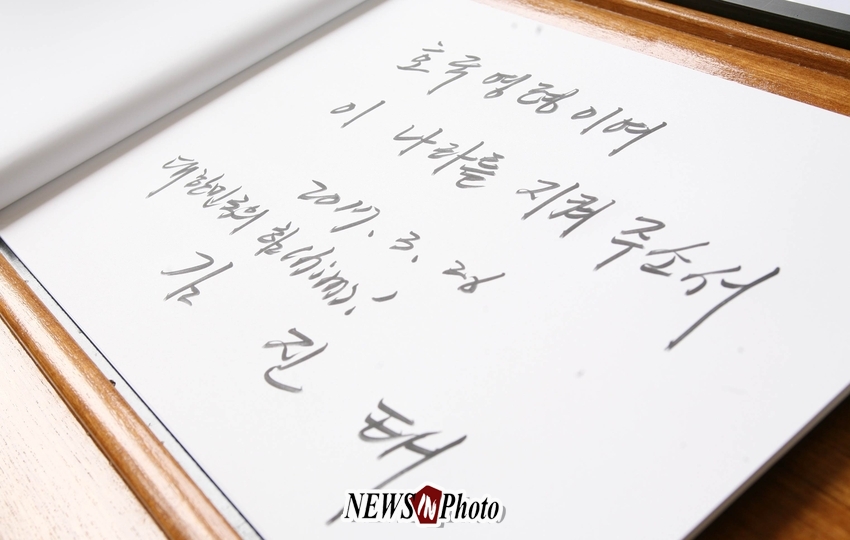 호국영령이여
이 나라를 지켜 주소서
2017. 3. 28
대한민국의 힘(him).!
김 진 태
NEWSINPhoto